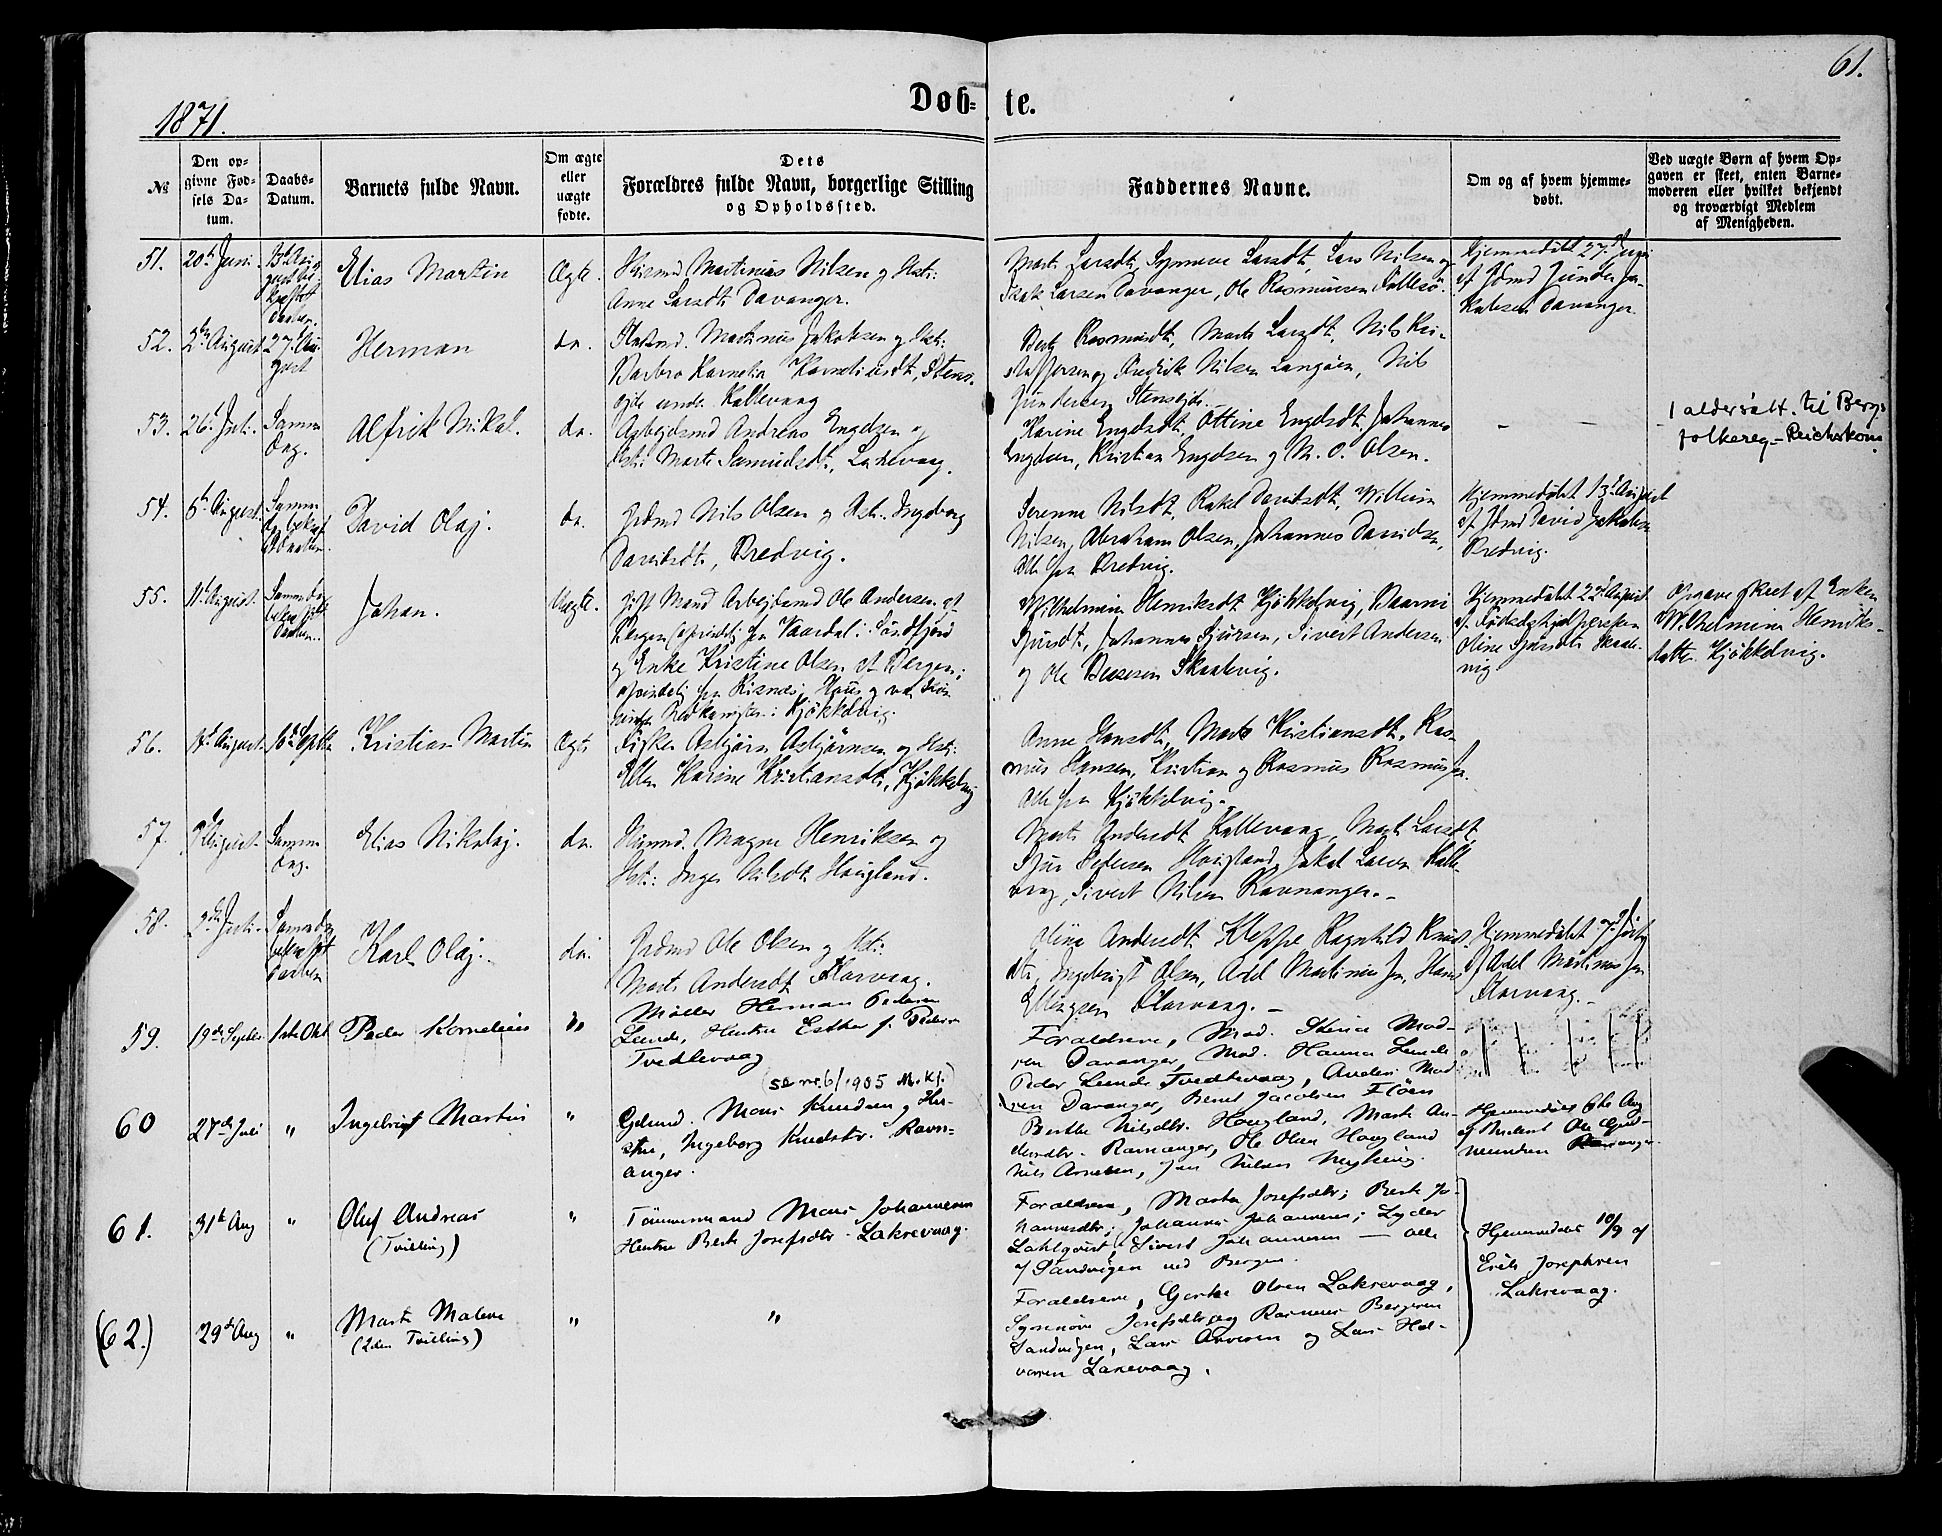 61.
Døb- te.
1871.
№
Den op-
givne Fød-
sels Da-
tum.
Daabs-
Datum.
Barnets fulde Navn.
Om ægte
eller
uægte
fødte.
Dets
Forældres fulde Navn, borgerlige Stilling
og Opholdssted.
Faddernes Navne.
Om og af hvem hjemme-
døbt.
Ved uægte Børn af hvem Op-
gaven er skeet, enten Barne-
moderen eller hvilket bekjendt
og troværdigt Medlem
af Menigheden.
51. 20de Juni.
Elias Martin
Ægte.
Martinus Nilsen og Hst:
Anne Larsdt. Davanger.
Marte Larsdt, Synneve Larsdt, Lars Nilsen og
Isak Larsen Davanger, Ole Rasmussen Follesø.
Hjemmedøbt 27de Juni
af Gdmd Gunder Ja-
kobsen Davanger
52. 2den August 27. Au-
gust
Herman
do.
Martinus Jakobsen og Hst:
Barbro Karnelia Karneliusdt, Stens-
ejde under Kallevaag
Berte Rasmusdt, Marte Larsdt, Nils Kri-
stoffersen og Fredrik Nilsen Langøen, Nils
Gundersen Stensejde.
53. 26de Juli. Samme
Dag.
Alfrik Mikal.
do.
Arbejdsmd Andreas Engelsen og
Hst: Marte Samuelsdt, Laksevaag.
Karine Engelsdt, Ottine Engelsdt, Johannes
Engelsen, Kristian Engelsen og M. O. Olsen.
– –
1 aldersatt. til Berg.
folkereg – Reichskom.
54. 6te August. Samme
Dag bekræft
Daaben
David Olaj.
do.
Gdmd Nils Olsen og Hst: Ingeborg
Davidsdt, Bredvig.
Serenne Nilsdt, Rakel Davidsdt, Willum
Nilsen, Abraham Olsen, Johannes Davidsen,
Alle fra Bredvig.
Hjemmedøbt 13de August
af Gdmd David Jakobsen
Bredvig.
55. 11te August. Samme Dag
bekræftet
Daaben..
Johan.
Uægte.
Gift Mand Arbejdsmd Ole Andersen af
Bergen (oprindelig fra Vaardal i Søndfjord
og Enke Kristine Olsen af Bergen;
oprindelig fra Risnes, Haus og
Kjøkkelvig.
Wilhelmine Henriksdt Kjøkkelvig,
Sjursdt, Johannes Sjursen, Sivert Andersen
og Ole Skaalevig.
Hjemmedøbt 22de August
af Fødselshjelpersken
Oline Sjursdt Skaale-
vig
Opgave skeet af Enken
Wilhelmine Henriks-
datter Kjøkkelvig.
56. August. 10de Septbr
Kristian Martin
Ægte
Fisker Asbjørn Asbjørnsen og Hst:
Ellen Karine Kristiansdt, Kjøkkelvig
Anne Hansdt, Marte Kristiansdt, Ras-
mus Hansen, Kristian og Rasmus Rasmussen
Alle fra Kjøkkelvig.
57. August. Samme
Dag.
Elias Nikolaj.
do.
Magne Henriksen og
Hst: Inger Nilsdt Hougland.
Marte Andersdt Kallevaag, Marte Larsdt,
Sjur Pedersen Hougland, Jakob Larsen Kalle-
vaag, Sivert Nilsen Ravnanger.
58. 2den Juli. Samme Dag
bekræftet
Daaben
Karl Olaj.
do.
Gdmd Ole Olsen og Hst:
Marte Andersdt Florvaag.
Oline Andersdt Kleppe, Ragnhild Knuds-
dt, Ingebrigt Olsen, Adel Martinussen, Hans
Ellingsen Florvaag.
Hjemmedøbt 7de July
af Adel Martinussen
Florvaag.
59. 19de Septbr 1ste Okt
Peder Kornelius
do
Møller Herman Pedersen
Lunde, Hustru Esther f. Pedersen
Tvedtevaag
(se nr. 6/1905 M. kl.)
Forældrene, Mad. Stina Mad-
sen Davanger, Mad. Hanna Lunde
Peder Lunde Tvedtevaag, Anders Mad-
sen Davanger, Bernt Jacobsen Fløen
60 27de Juli "
Ingebrigt Martin
"
Gdmd. Mons Knudsen og Hu-
stru, Ingeborg Knudsdtr. Ravn-
anger.
Berthe Nilsdtr. Hougland, Marte An-
dersdtr. Ravnanger, Ole Olsen Hougland
Nils Arnesen, Jan Nilsen
Hjemmedøbt 6te Aug
af
61. 31te Aug "
Oluf Andreas
(Tvilling)
"
Tømmermand Mons Johannesen
Hustru Berte Josefsdtr. Laksevaag.
Forældrene, Marta Josefsdtr; Berte Jo-
hannesdtr; Johannes Johannesen; Lyder
Dahlqvist; Sivert Johannesen — alle
af Sandvigen ved Bergen.
Hjemmedøbt 10/9 af
Erik Josephsen
Laksevaag.
(62.) 29de Aug "
Marte Malene
(2den Tvilling)
" "
Forældrene, Gjertine Olsen Laksevaag,
Synnøve Josefsdtr, og Rasmus Bergesen
Sandvigen, Lars Arnesen og Lars Hal-
vorsen Laksevaag.